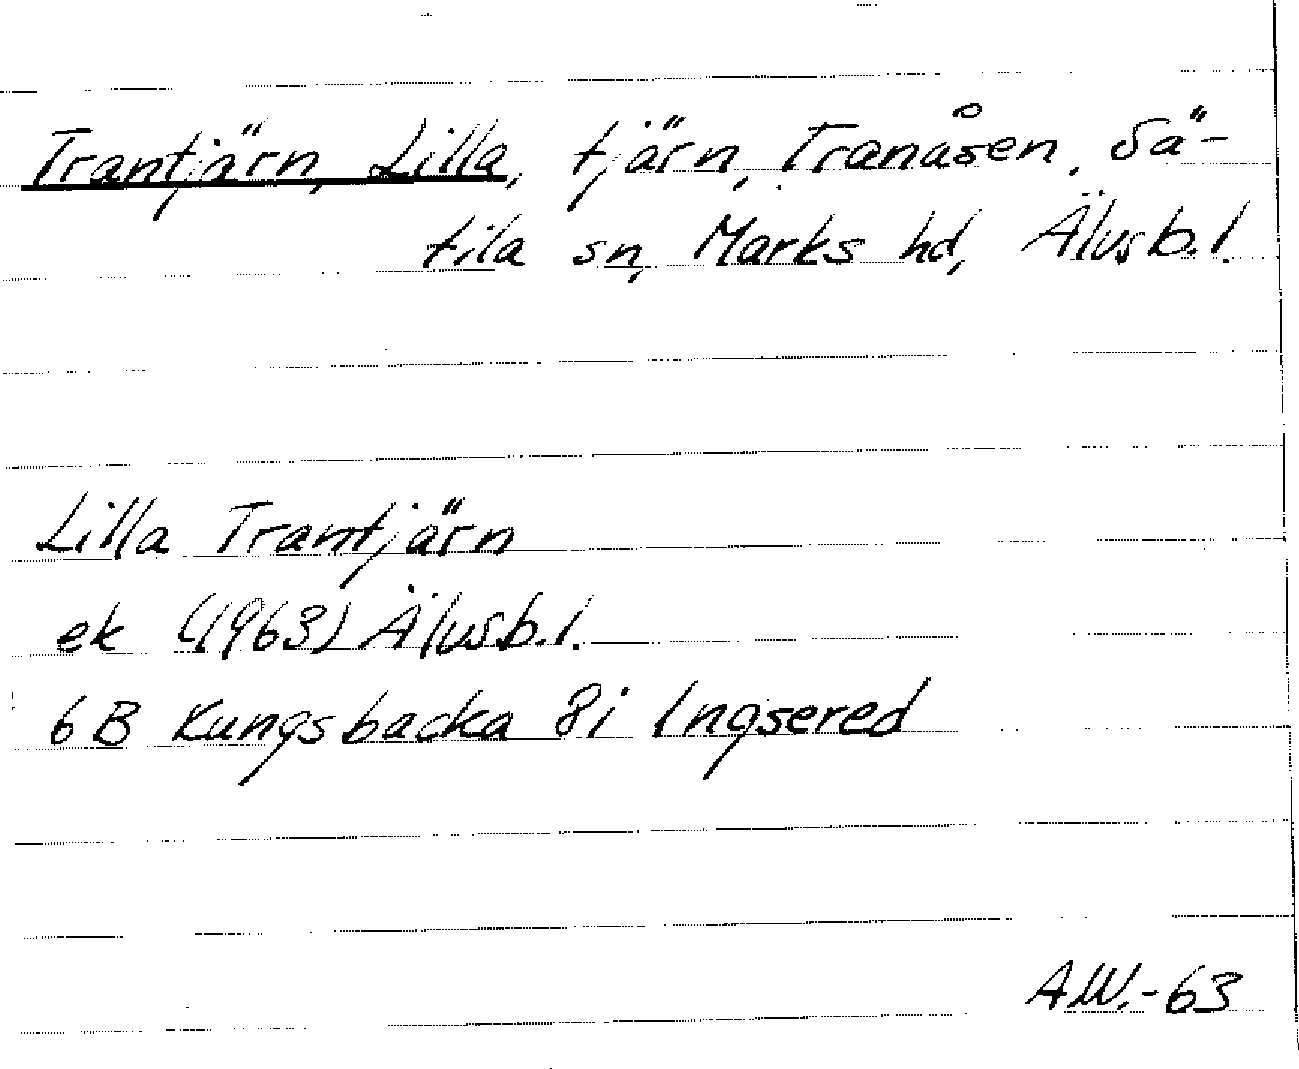 Trantjärn, Lilla, tjärn, Tranåsen, Sä-
tila sn, Marks hd, Älvsb.l.
Lilla Trantjärn
ek (1963) Älvsb.l.
6B Kungsbacka 8i Ingsered
A.W.-63